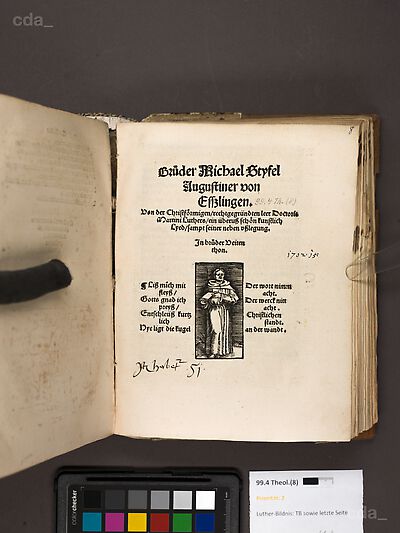 cda_
8
Brůder Michael Styfel
Augustiner von
Eſſzlingen.
99.4 Th. (8)
Von der Chriſtförmigen/ rechtgegründten leer Doctoris
Martini Luthers/ ein überuß ſchön kunſtlich
Lyed/ ſampt ſeiner neben vßlegung.
In brůder Veiten
thon.
¶ Liß mich mit
fleyß/
Gotts gnad ich
preyß/
Entſchleüß kurtz
lich
Hye ligt die kugel
Der wort nimm
acht.
Der werck nit
acht.
Chriſtlichen
ſtandt.
an der wandt.
51
colorchecker
99.4 Theol.(8)
Priorität: 2
Luther-Bildnis: TB sowie letzte Seite
cda_